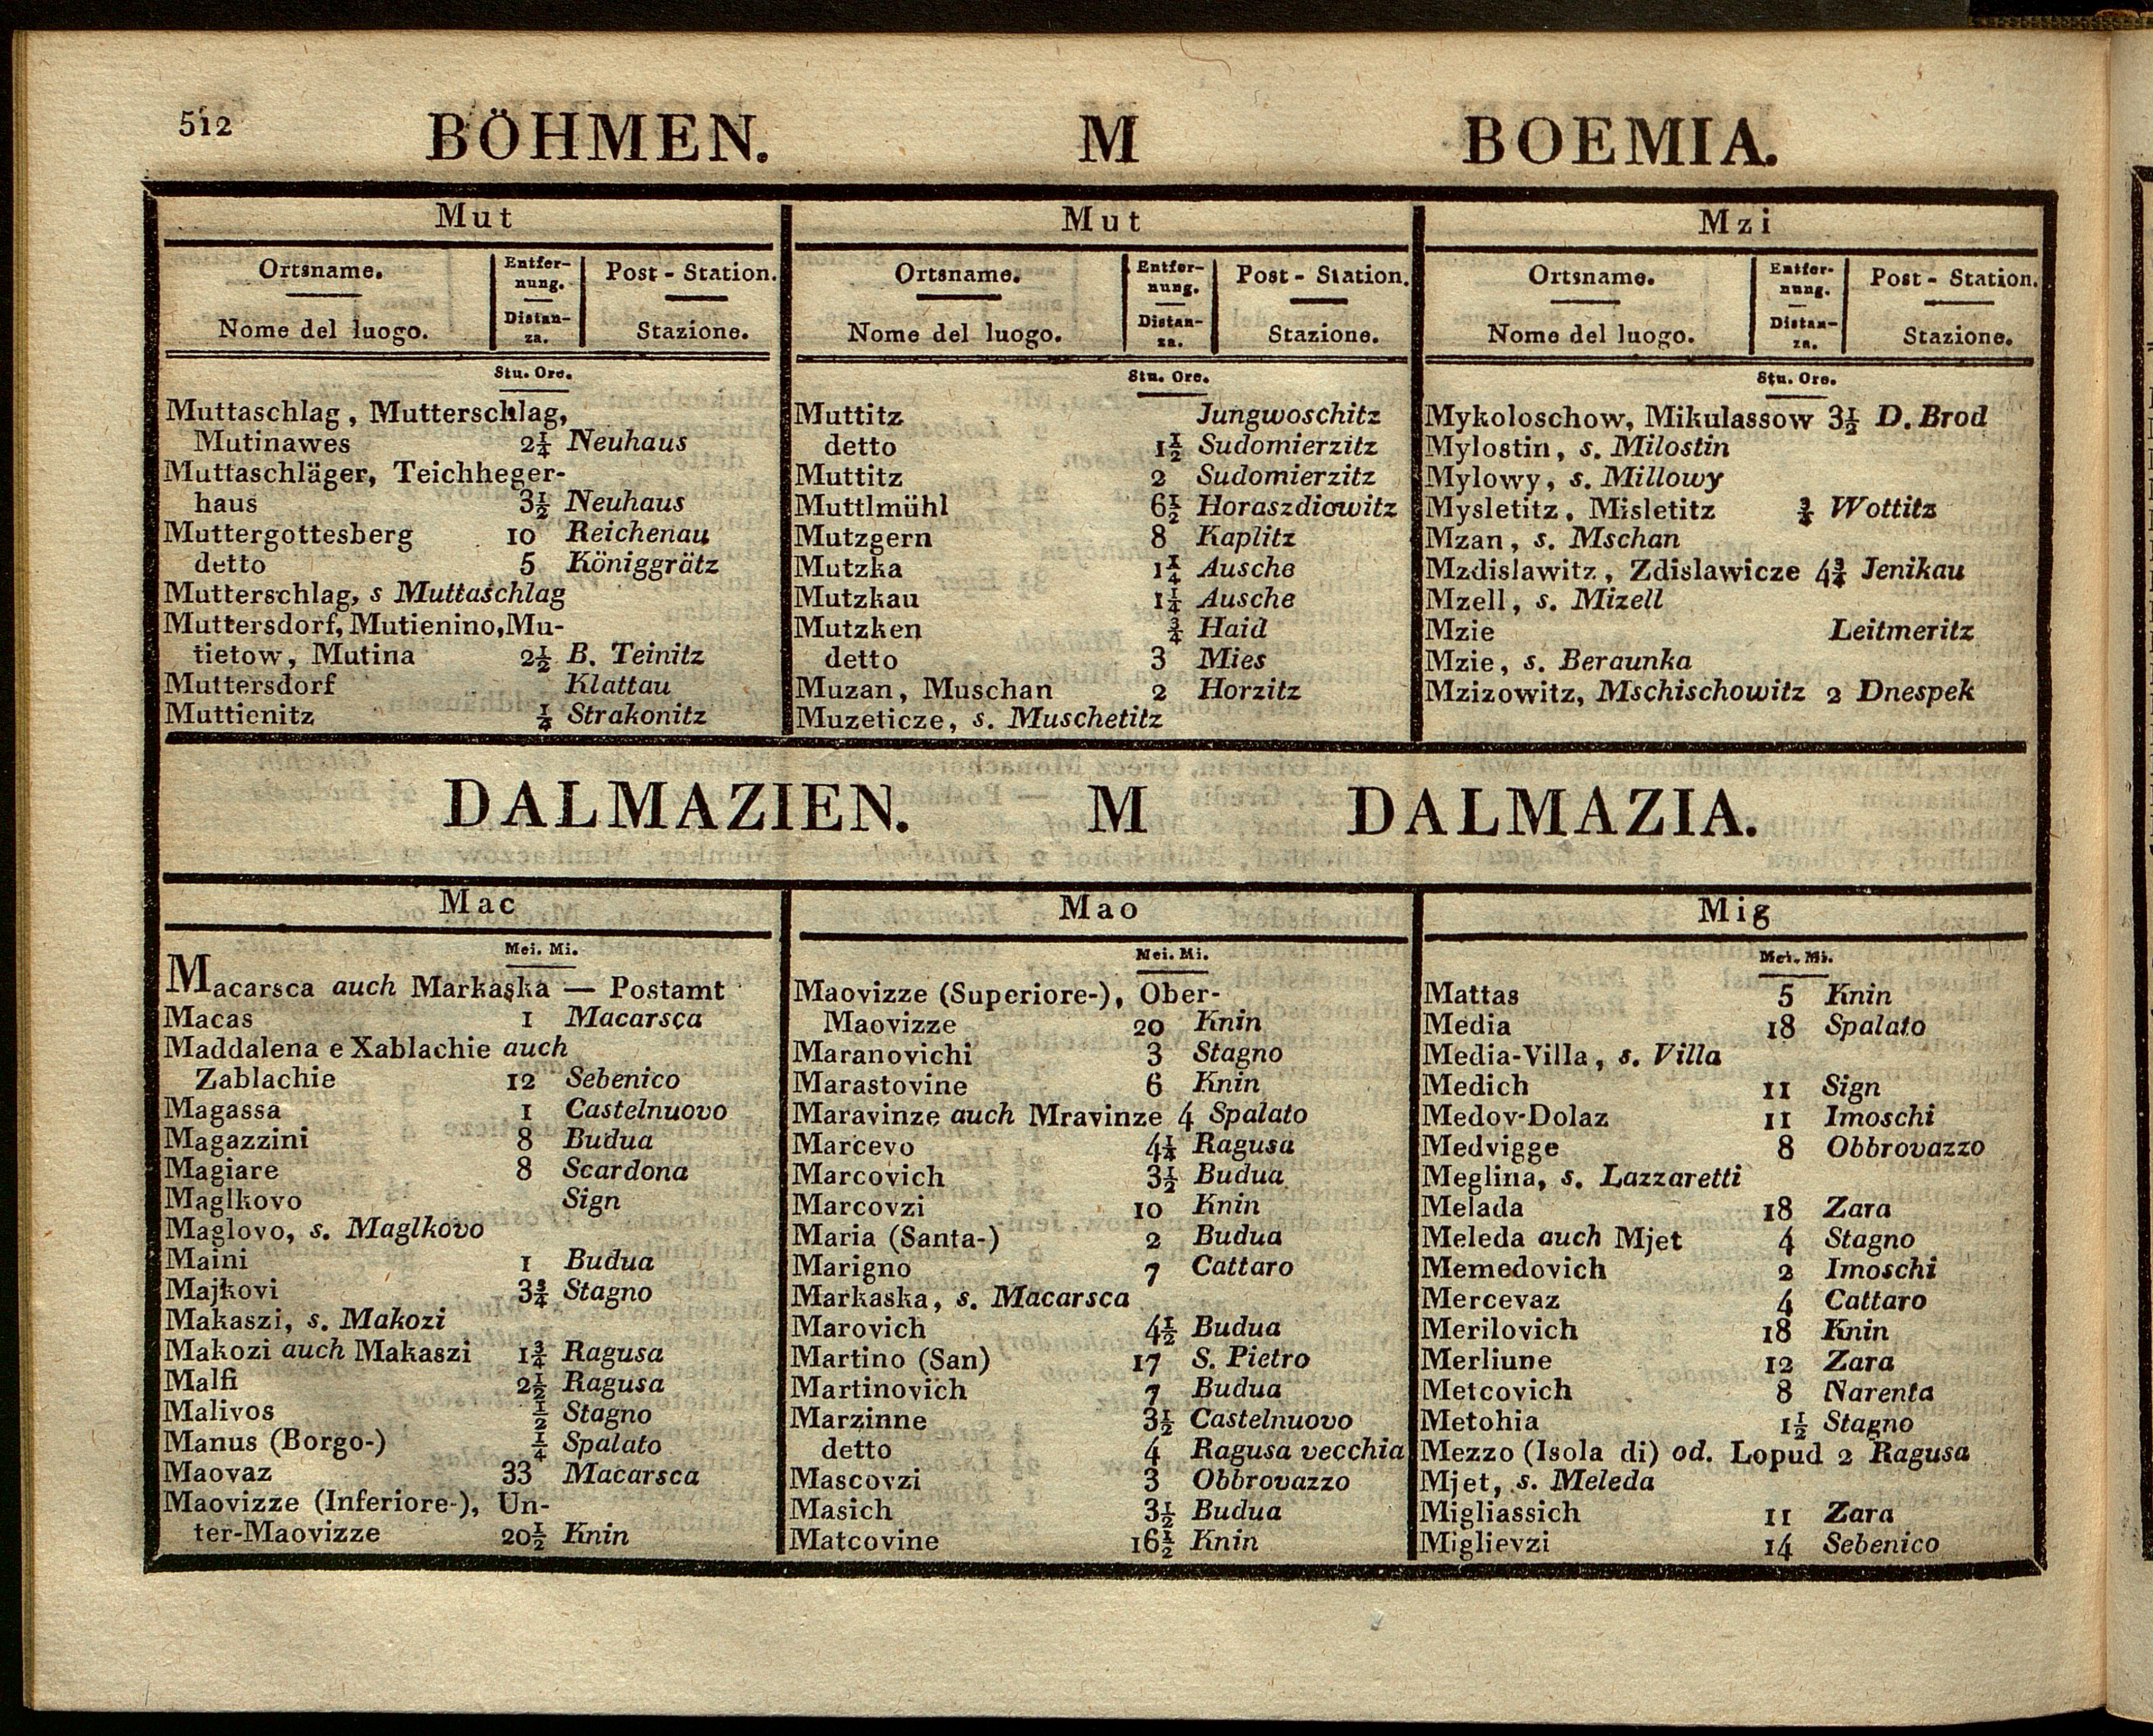 512
BÖHMEN. M BOEMIA.
Mut
Ortsname.
Nome del luogo.
Entfer-
nung.
Distan-
za.
Post - Station.
Stazione.
Stu. Ore.
Muttaschlag, Mutterschlag,
Mutinawes 2¼ Neuhaus
Muttaschläger, Teichheger-
haus 3½ Neuhaus
Muttergottesberg 10 Reichenau
detto 5 Königgrätz
Mutterschlag, s Muttaschlag
Muttersdorf, Mutienino, Mu-
tietow, Mutina 2½ B. Teinitz
Muttersdorf Klattau
Muttienitz ¼ Strakonitz
Mut
Ortsname.
Nome del luogo.
Entfer-
nung.
Distan-
za.
Post - Station.
Stazione.
Stu. Ore.
Muttitz Jungwoschitz
detto 1½ Sudomierzitz
Muttitz 2 Sudomierzitz
Muttlmühl 6½ Horaszdiowitz
Mutzgern 8 Kaplitz
Mutzka 1¼ Ausche
Mutzkau 1¼ Ausche
Mutzken ¾ Haid
detto 3 Mies
Muzan, Muschan 2 Horzitz
Muzeticze, s. Muschetitz
Mzi
Ortsname.
Nome del luogo.
Entfer-
nung.
Distan-
za.
Post - Station.
Stazione.
Stu. Ore.
Mykoloschow, Mikulassow 3½ D. Brod
Mylostin, s. Milostin
Mylowy, s. Millowy
Mysletitz, Misletitz ¾ Wottitz
Mzan, s. Mschan
Mzdislawitz, Zdislawicze 4¾ Jenikau
Mzell, s. Mizell
Mzie Leitmeritz
Mzie, s. Beraunka
Mzizowitz, Mschischowitz 2 Dnespek
DALMAZIEN. M DALMAZIA.
Mac
Mei. Mi.
Macarsca auch Markaska — Postamt
Macas 1 Macarsca
Maddalena e Xablachie auch
Zablachie 12 Sebenico
Magassa 1 Castelnuovo
Magazzini 8 Budua
Magiare 8 Scardona
Maglkovo Sign
Maglovo, s. Maglkovo
Maini 1 Budua
Majkovi 3¾ Stagno
Makaszi, s. Makozi
Makozi auch Makaszi 1¾ Ragusa
Malfi 2½ Ragusa
Malivos ½ Stagno
Manus (Borgo-) ¼ Spalato
Maovaz 33 Macarsca
Maovizze (Inferiore-), Un-
ter-Maovizze 20½ Knin
Mao
Mei. Mi.
Maovizze (Superiore-), Ober-
Maovizze 20 Knin
Maranovichi 3 Stagno
Marastovine 6 Knin
Maravinze auch Mravinze 4 Spalato
Marcevo 4¼ Ragusa
Marcovich 3½ Budua
Marcovzi 10 Knin
Maria (Santa-) 2 Budua
Marigno 7 Cattaro
Markaska, s. Macarsca
Marovich 4½ Budua
Martino (San) 17 S. Pietro
Martinovich 7 Budua
Marzinne 3½ Castelnuovo
detto 4 Ragusa vecchia
Mascovzi 3 Obbrovazzo
Masich 3½ Budua
Matcovine 16½ Knin
Mig
Mei. Mi.
Mattas 5 Knin
Media 18 Spalato
Media-Villa, s. Villa
Medich 11 Sign
Medov-Dolaz 11 Imoschi
Medvigge 8 Obbrovazzo
Meglina, s. Lazzaretti
Melada 18 Zara
Meleda auch Mjet 4 Stagno
Memedovich 2 Imoschi
Mercevaz 4 Cattaro
Merilovich 18 Knin
Merliune 12 Zara
Metcovich 8 Narenta
Metohia 1½ Stagno
Mezzo (Isola di) od. Lopud 2 Ragusa
Mjet, s. Meleda
Migliassich 11 Zara
Miglievzi 14 Sebenico